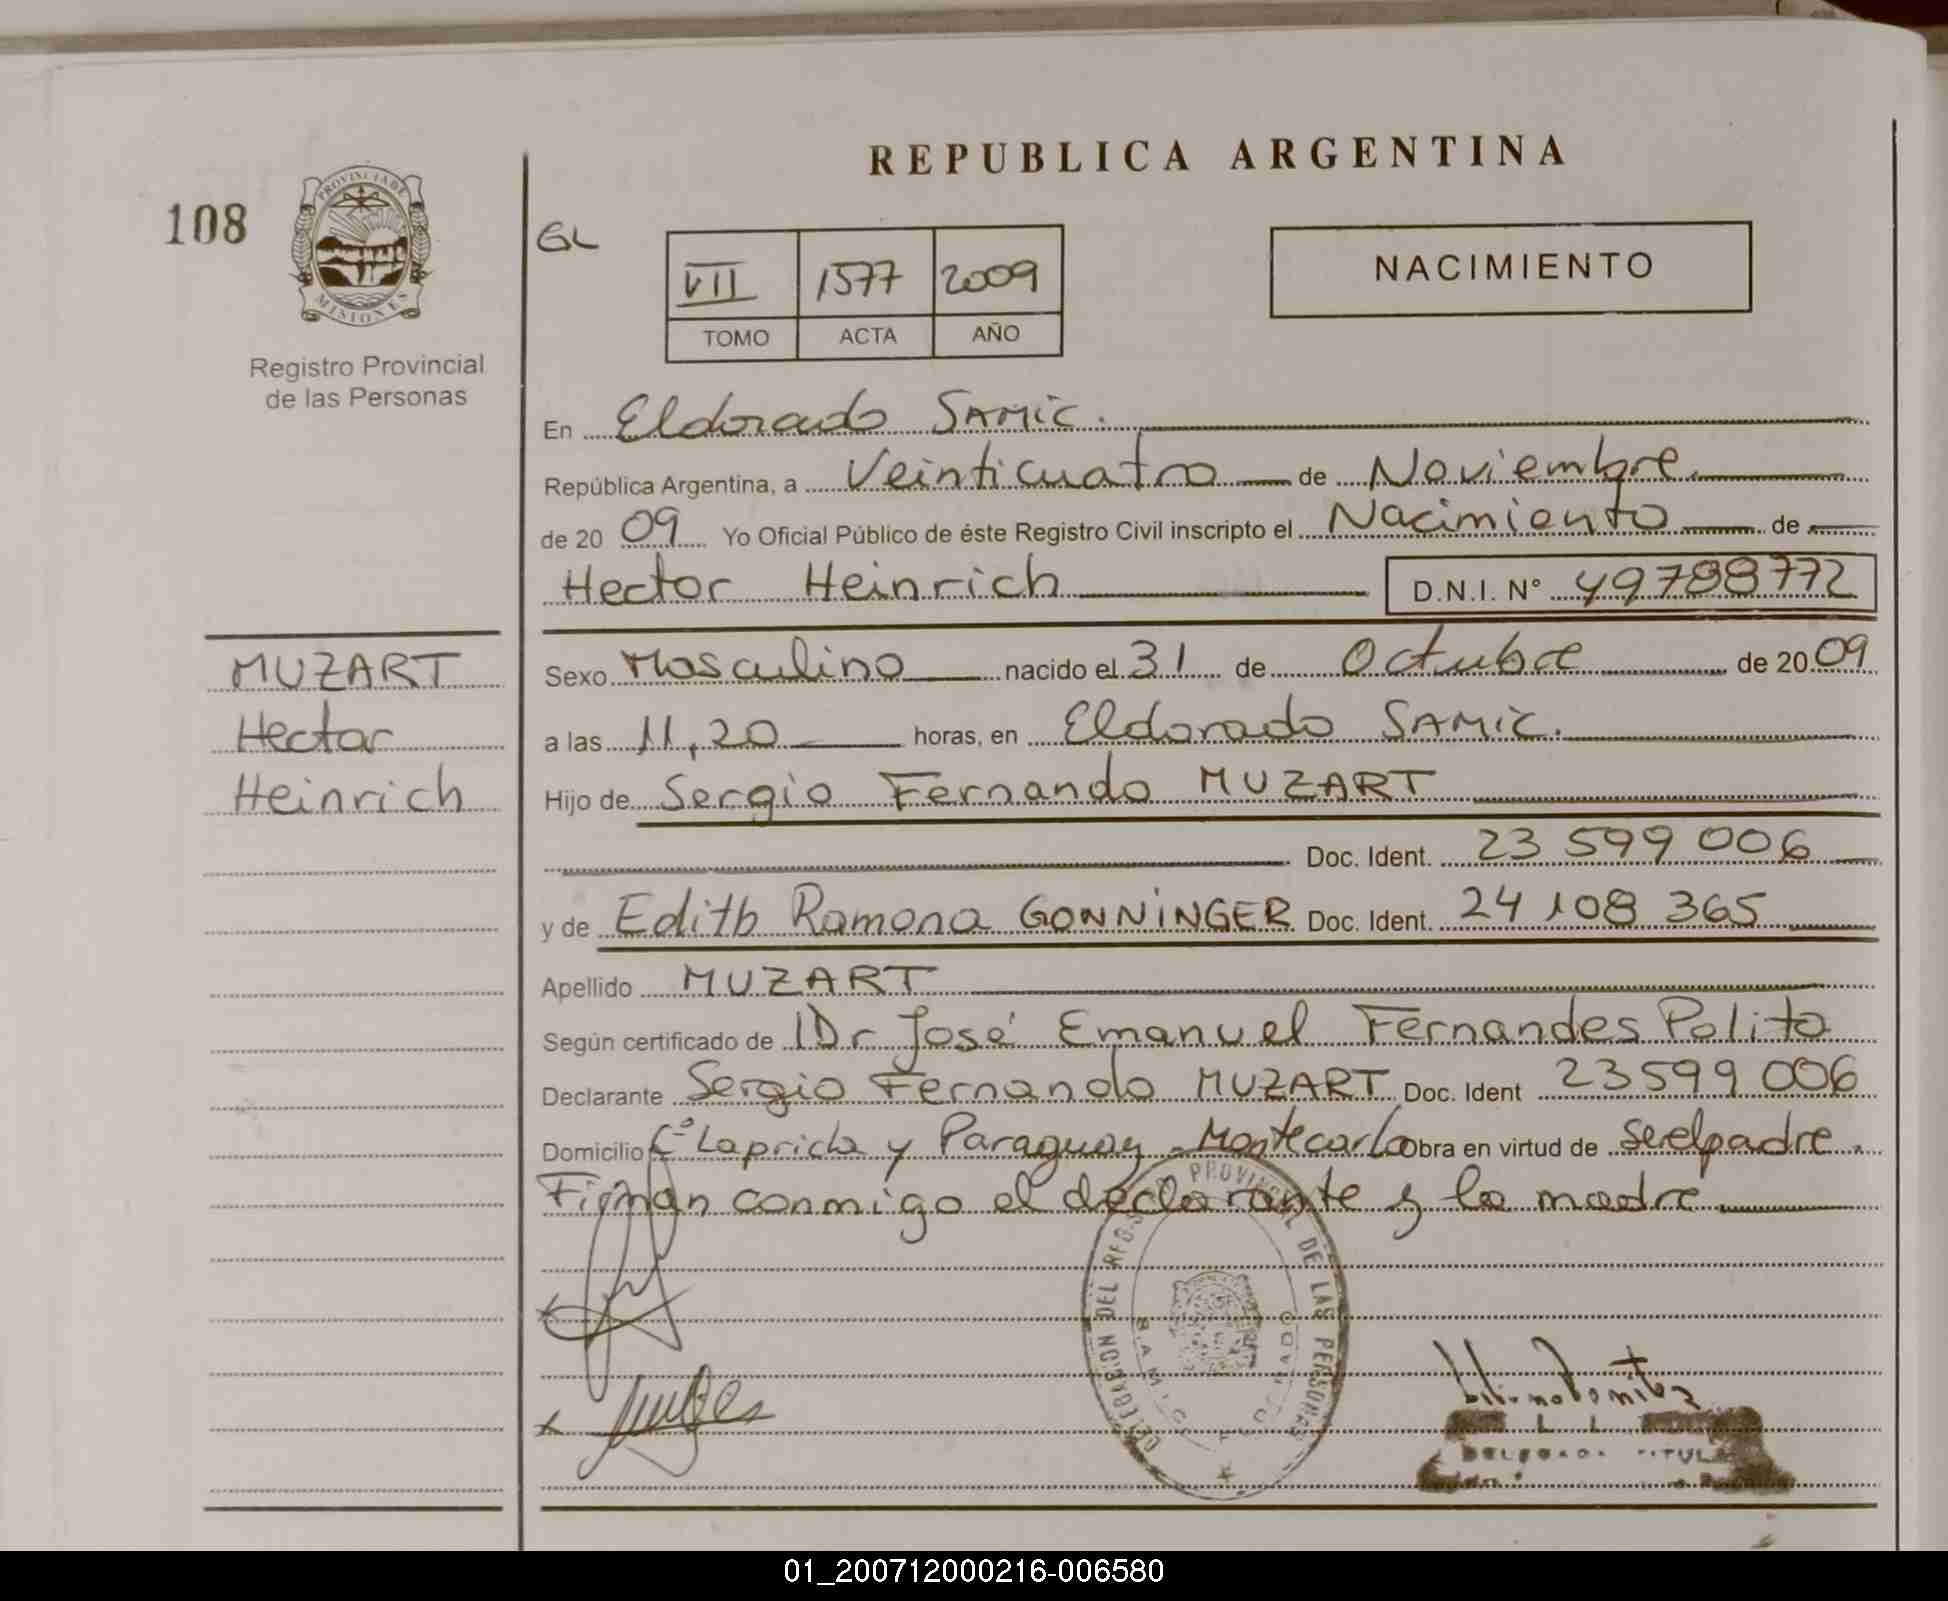 REPUBLICA ARGENTINA
108
PROVINCIA DE
MISIONES
Registro Provincial
de las Personas
GL
VII 1577 2009
TOMO ACTA AÑO
NACIMIENTO
En Eldorado SAMIC.
República Argentina, a Veinticuatro de Noviembre
de 20 09 Yo Oficial Público de éste Registro Civil inscripto el Nacimiento de
Hector Heinrich D.N.I. N° 49788772
MUZART
Hector
Heinrich
Sexo Masculino nacido el 31 de Octubre de 20 09
a las 11,20 horas, en Eldorado SAMIC.
Hijo de Sergio Fernando MUZART
Doc. Ident. 23 599 006
y de Edith Ramona GONNINGER Doc. Ident. 24 108 365
Apellido MUZART
Según certificado de Dr José Emanuel Fernandes Polito
Declarante Sergio Fernando MUZART Doc. Ident 23 599 006
Domicilio Cº Laprida y Paraguay - Montecarlo Obra en virtud de ser el padre.
Firman conmigo el declarante y la madre
DELEGACION DEL REG. PROVINCIAL DE LAS PERSONAS
S.A.M.I.C. ELDORADO
01_200712000216-006580